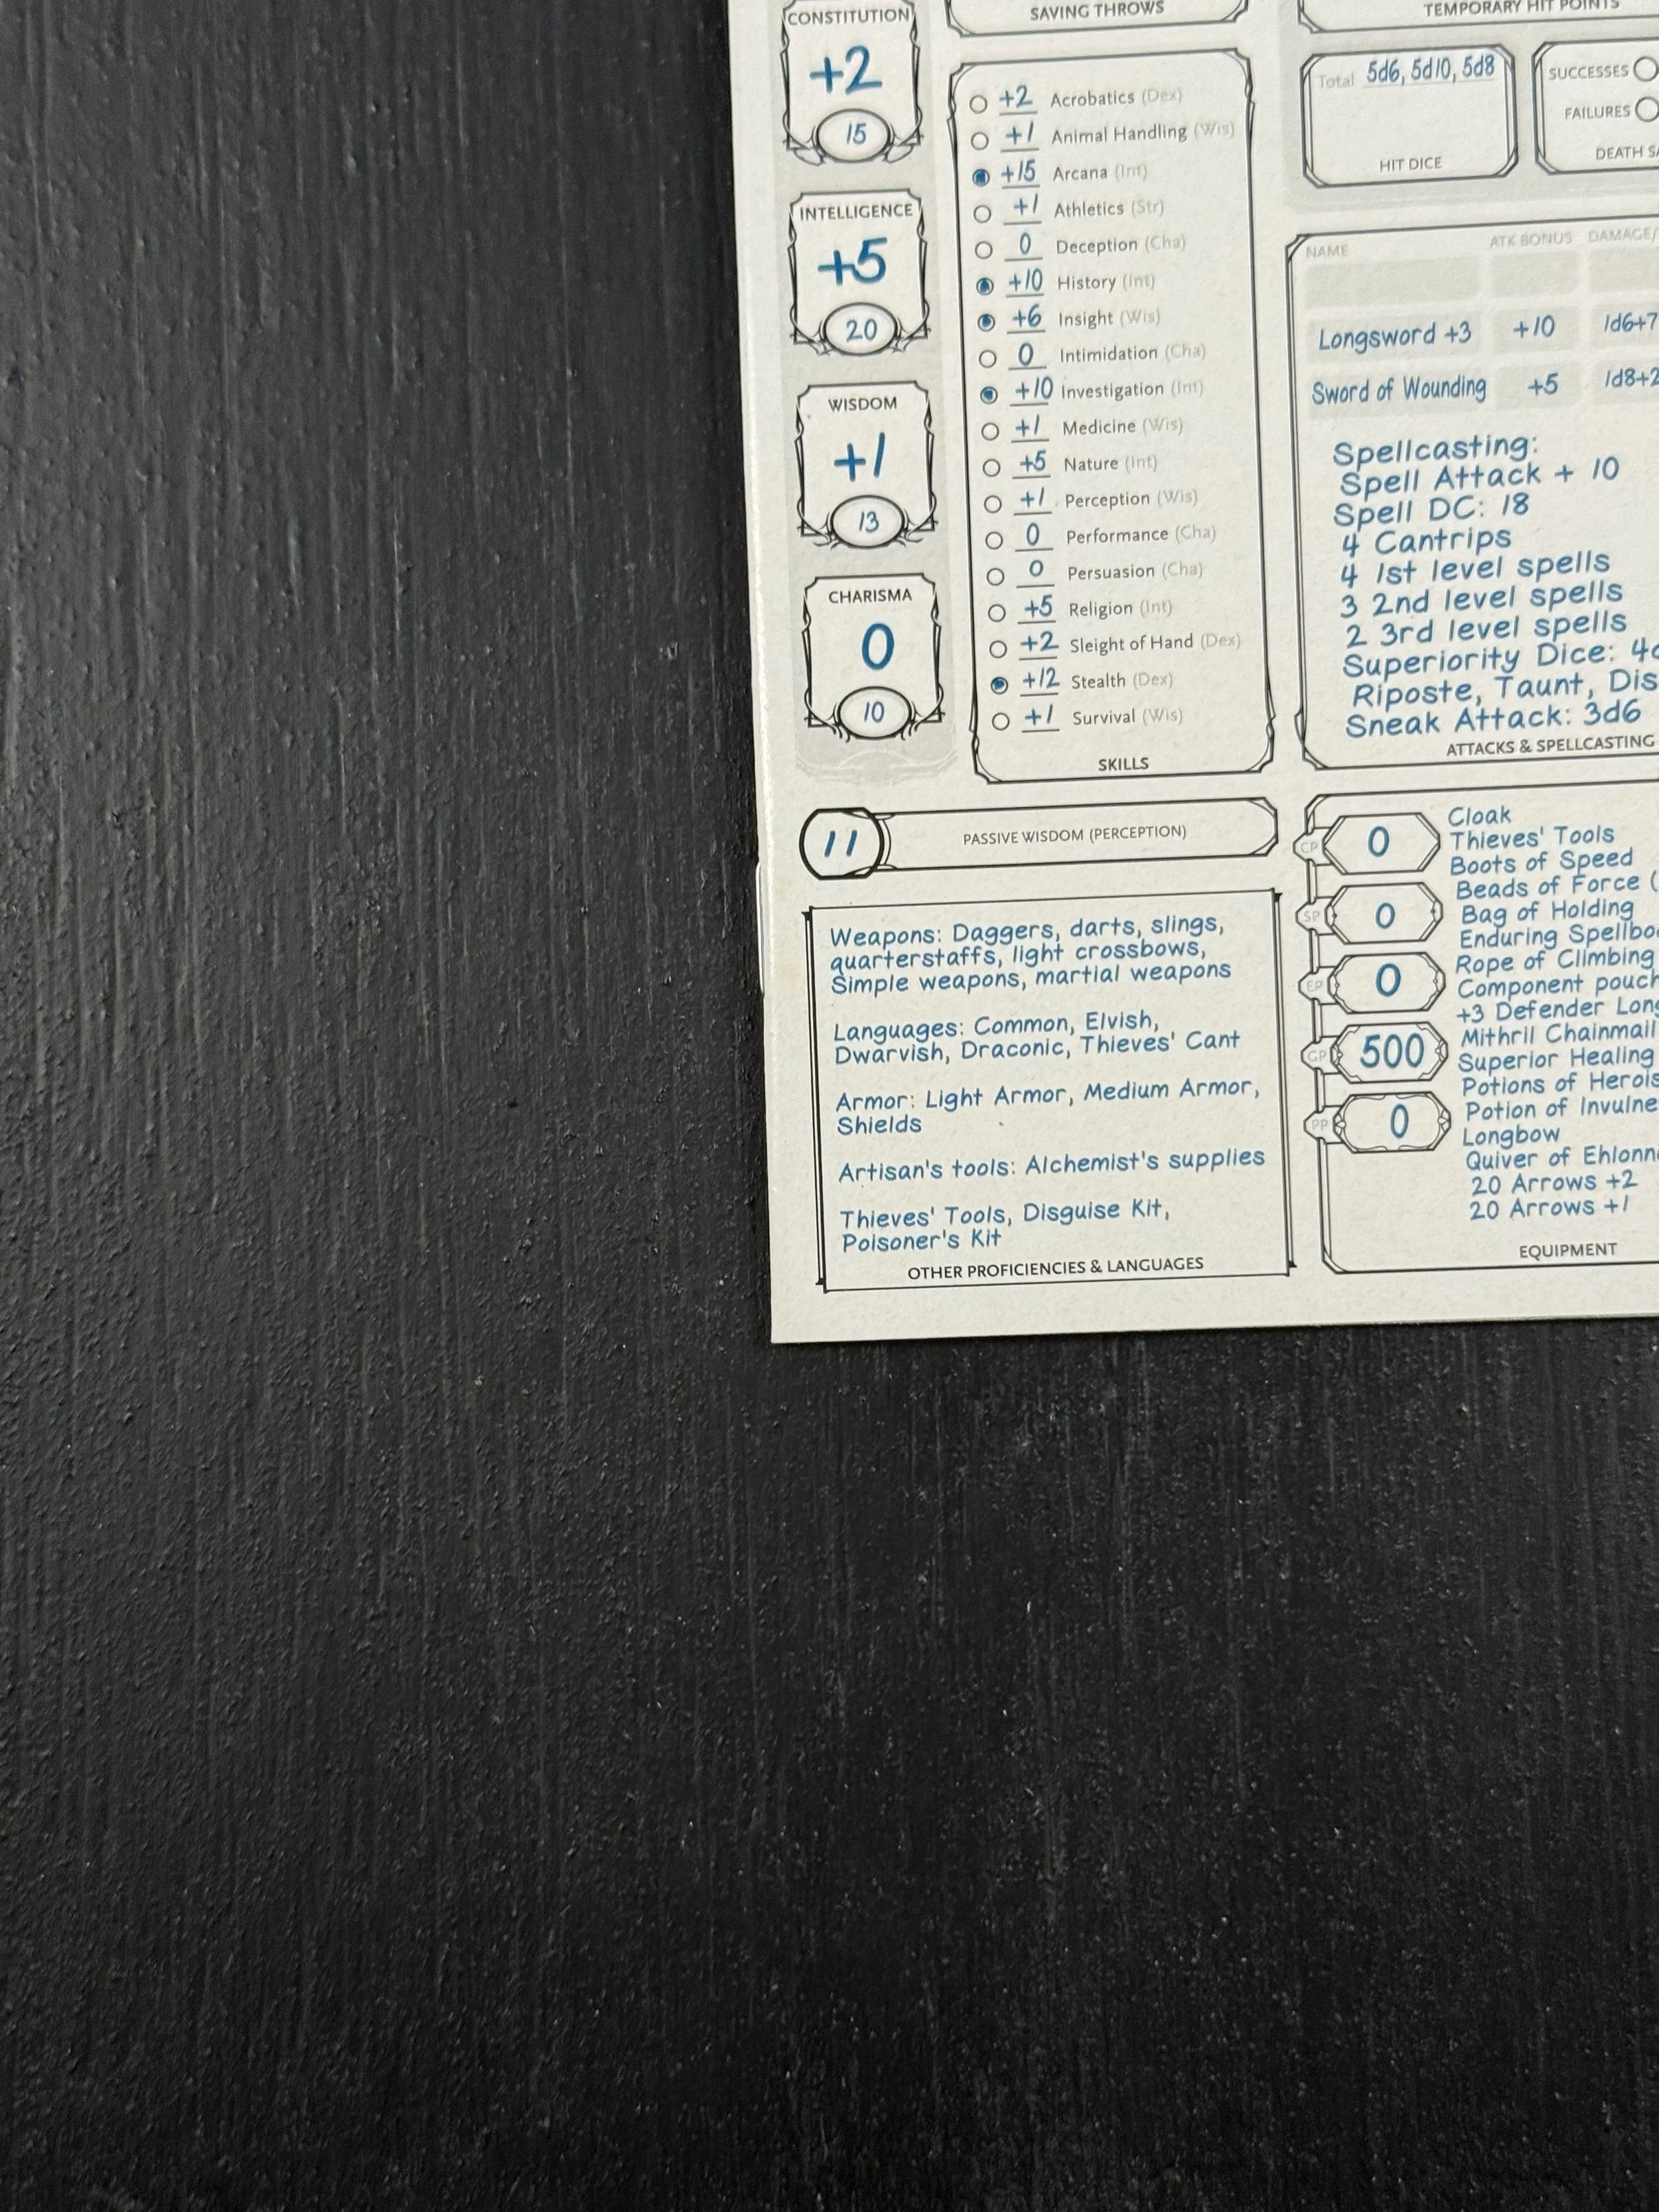 CONSTITUTION
+2
15
INTELLIGENCE
+5
20
WISDOM
+1
13
CHARISMA
0
10
SAVING THROWS
+2 Acrobatics (Dex)
+1 Animal Handling (Wis)
+15 Arcana (Int)
+1 Athletics (Str)
0 Deception (Cha)
+10 History (Int)
+6 Insight (Wis)
0 Intimidation (Cha)
+10 Investigation (Int)
+1 Medicine (Wis)
+5 Nature (Int)
+1 Perception (Wis)
0 Performance (Cha)
0 Persuasion (Cha)
+5 Religion (Int)
+2 Sleight of Hand (Dex)
+12 Stealth (Dex)
+1 Survival (Wis)
SKILLS
11 PASSIVE WISDOM (PERCEPTION)
Weapons: Daggers, darts, slings,
quarterstaffs, light crossbows,
Simple weapons, martial weapons
Languages: Common, Elvish,
Dwarvish, Draconic, Thieves' Cant
Armor: Light Armor, Medium Armor,
Shields
Artisan's tools: Alchemist's supplies
Thieves' Tools, Disguise Kit,
Poisoner's Kit
OTHER PROFICIENCIES & LANGUAGES
TEMPORARY HIT POINTS
Total 5d6, 5d10, 5d8
HIT DICE
SUCCESSES
FAILURES
DEATH
NAME ATK BONUS DAMAGE/
Longsword +3 +10 1d6+7
Sword of Wounding +5 1d8+2
Spellcasting:
Spell Attack + 10
Spell DC: 18
4 Cantrips
4 1st level spells
3 2nd level spells
2 3rd level spells
Superiority Dice:
Riposte, Taunt,
Sneak Attack: 3d6
ATTACKS & SPELLCASTING
CP 0
SP 0
EP 0
GP 500
PP 0
Cloak
Thieves' Tools
Boots of Speed
Beads of Force (
Bag of Holding
Enduring
Rope of Climbing
Component pouch
+3 Defender
Mithril Chainmail
Superior Healing
Potions of
Potion of
Longbow
Quiver of
20 Arrows +2
20 Arrows +1
EQUIPMENT